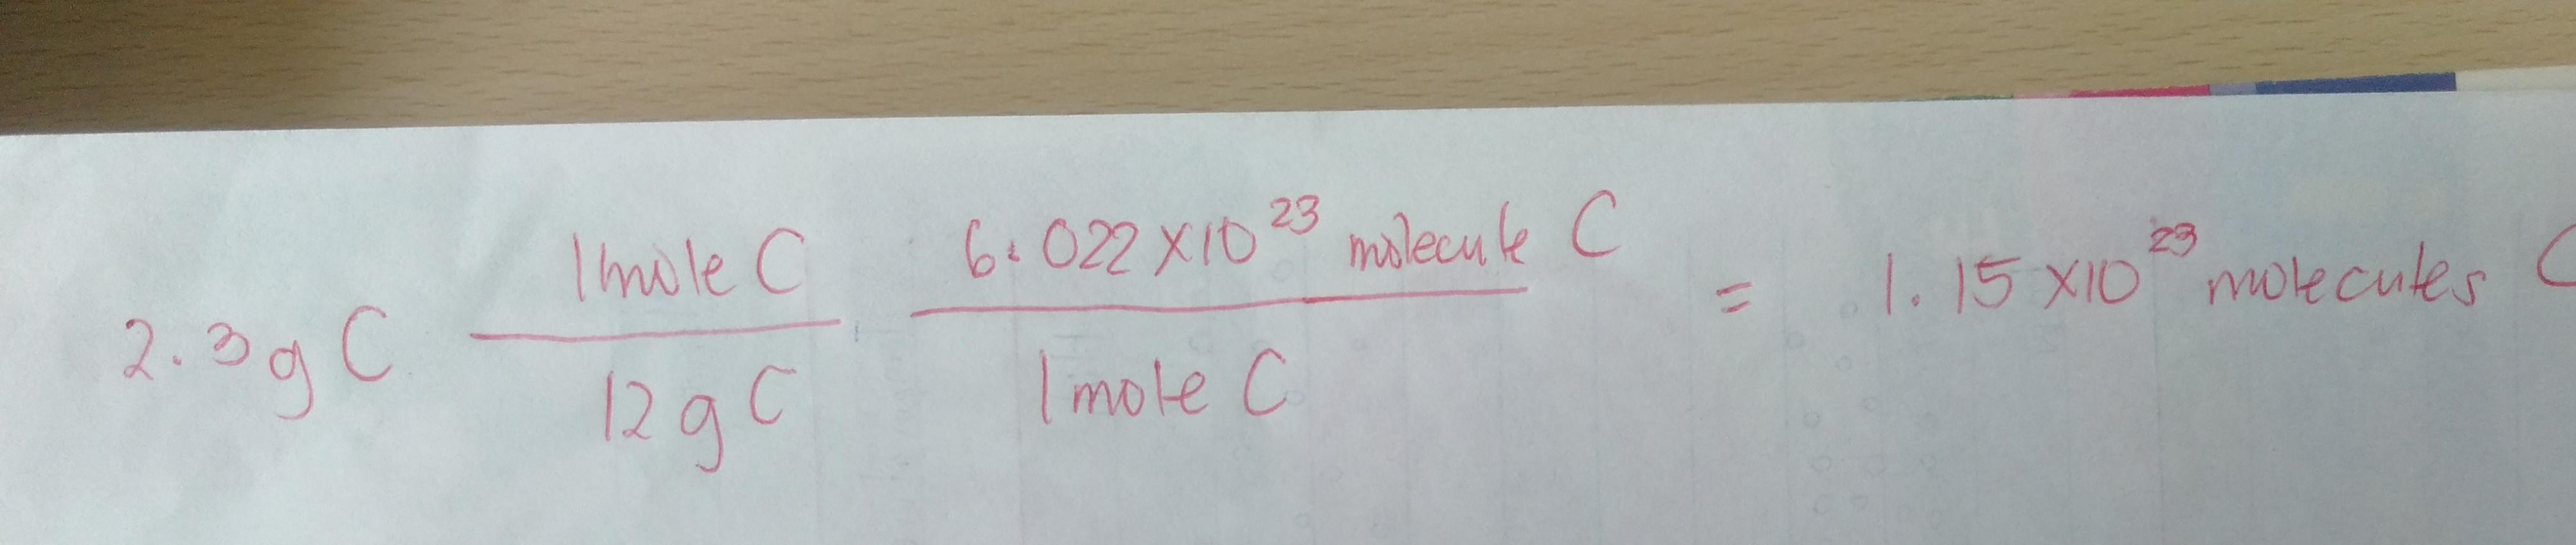 2.3g C 1mole C / 12g C 6.022 x 10^23 molecule C / 1mole C = 1.15 x10^23 molecules C